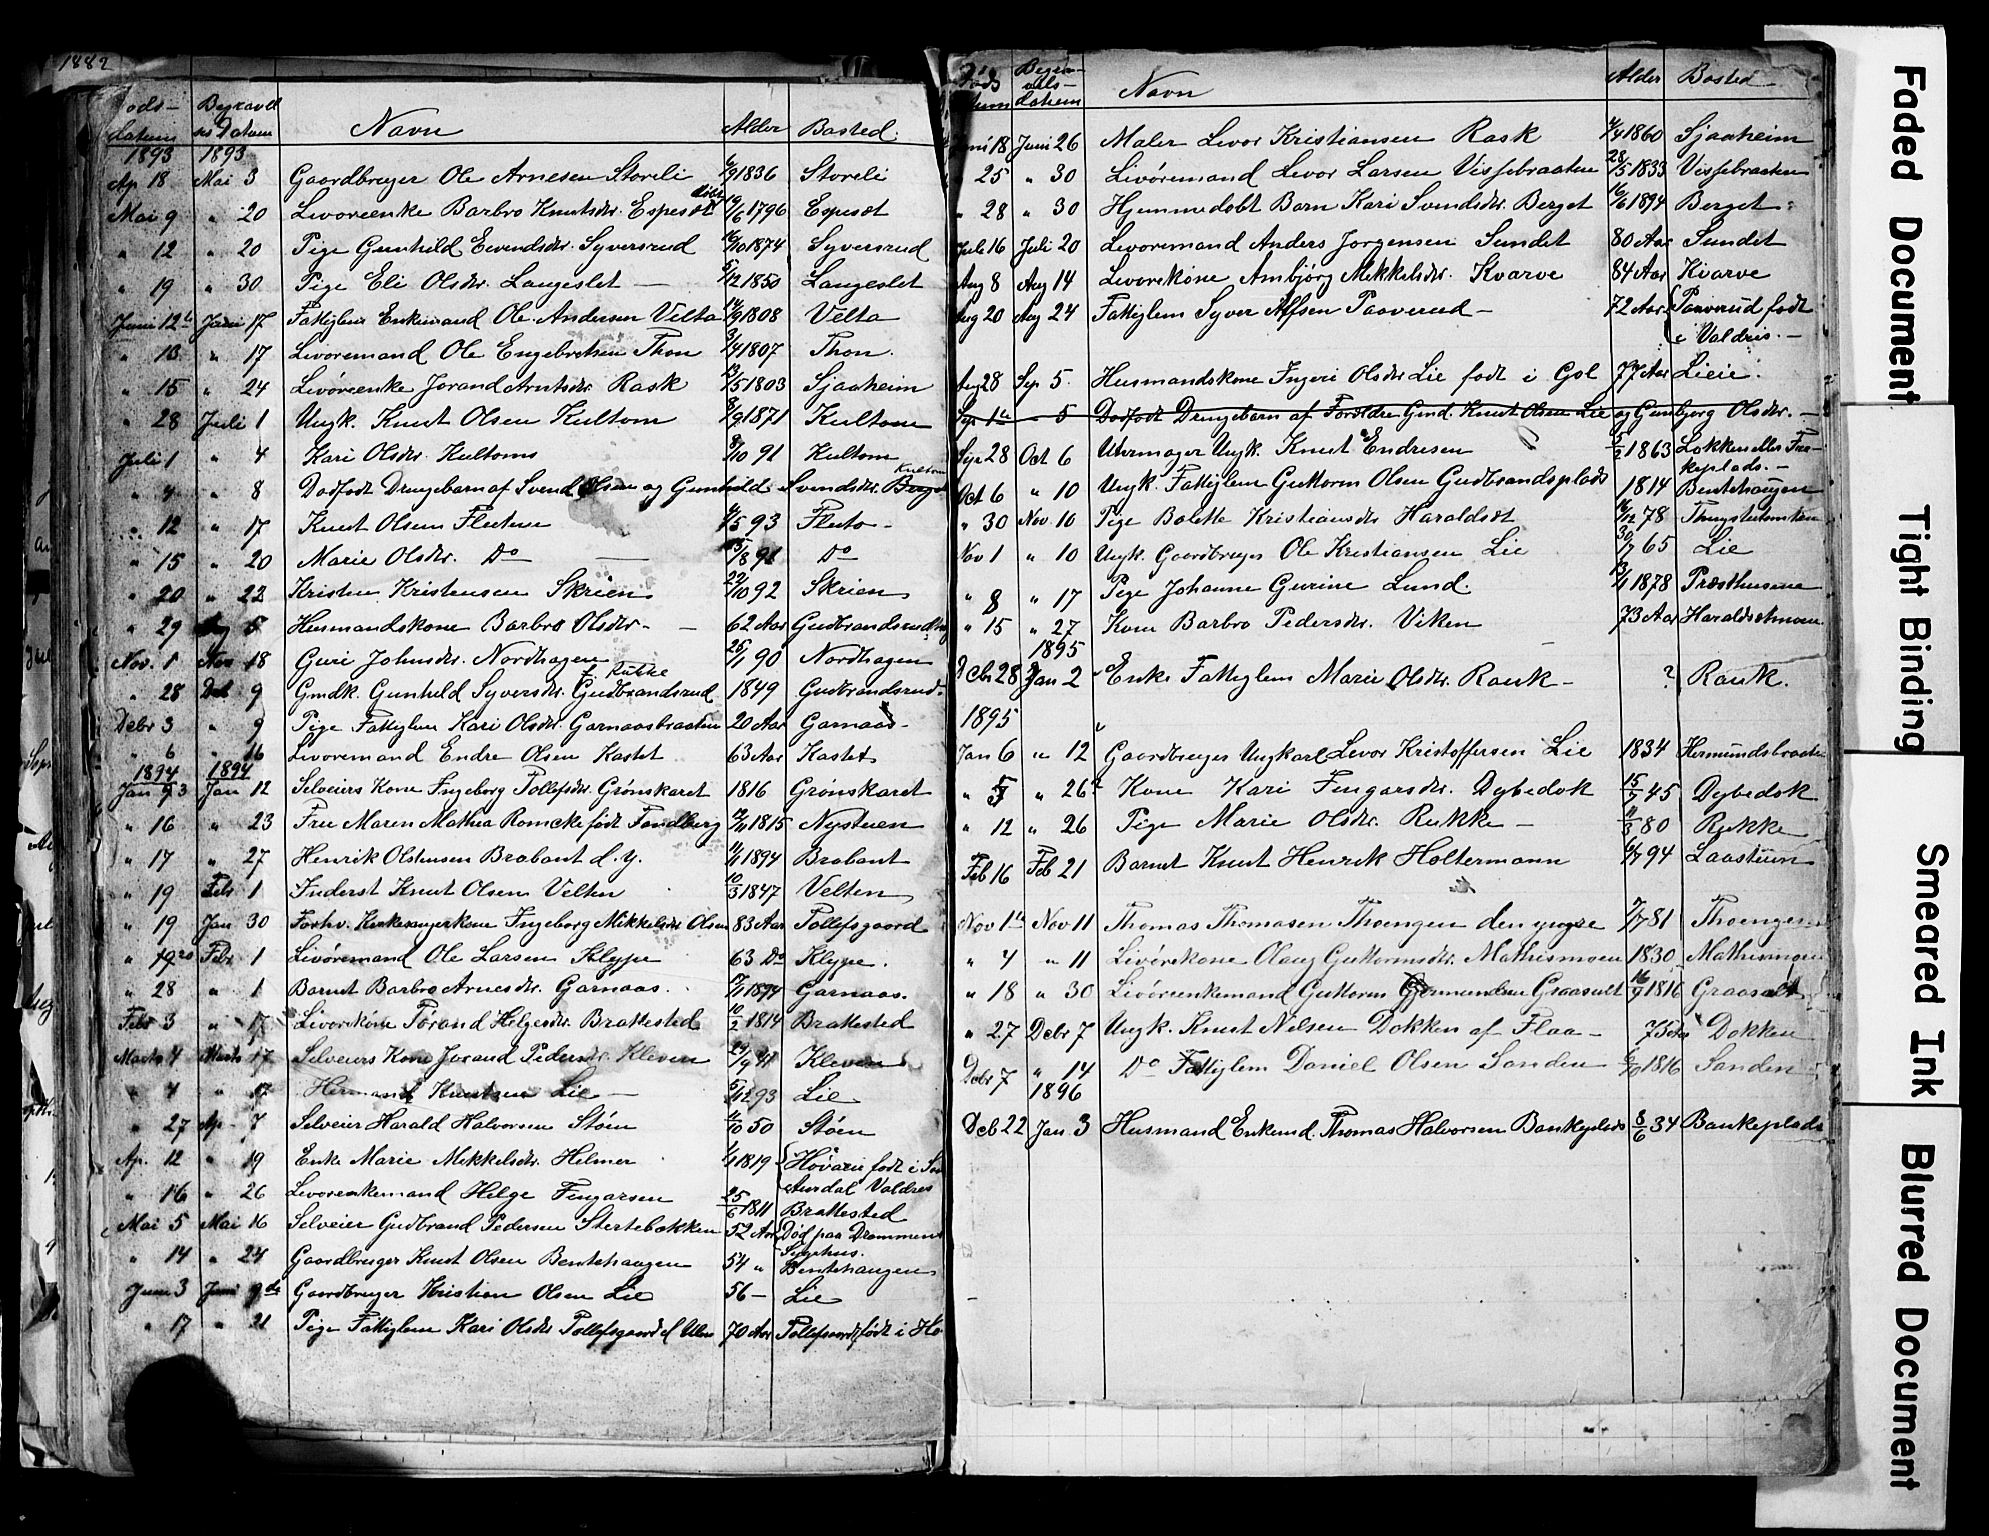 1882
Døds-
datum Begravel
ses Datum Navn Alder Bosted
1893 1893
Ap 18 Mai 3 Gaardbruger Ole Arnesen Storeli 1836 Storeli
Mai 9 " 20 Livøreenke Barbro Knutsdtr. Espeset 1796 Espeset
" 12 " 20 Pige Gunhild Evendsdtr. Syversrud 1874 Syversrud
" 19 " 30 Pige Eli Olsdtr. Langeslet — 1850 Langeslet
Juni 12 Juni 17 Fattiglem Enkemand Ole Andersen Velta 1808 Velta
" 13 " 17 Livøremand Ole Engebretsen Thon 1807 Thon.
" 15 " 24 Livøreenke Jørand Arntsdtr. Rask 1803 Sjaaheim
" 28 Juli 1 Ungk. Knut Olsen Kultom 1871 Kultom
Juli 1 " 4 Kari Olsdtr. Kultom 91 Kultom
Kultom
" 4 " 8 Dødfødt Drengebarn af Svend Olsen og Gunhild Svendsdtr. Berget
" 12 " 17 Knut Olsen Fluten 93 Fluto -
" 15 " 20 Marie Olsdtr. Do — 91 Do
" 20 " 22 Kristen Kristensen Skrien 22/10 92 Skrien
" 29 Aug 5 Husmandskone Barbro Olsdtr. - 62 Aar Gudbrandsrud
Nov. 1 Nov 18 Guri Johnsdtr. Nordhagen 90 Nordhagen
f. Rukke
" 28 Deb 9 Gmdk. Gunhild Syversdtr. Gudbrandsrud 1849 Gudbrandsrud
Debr 3 " 9 Pige Fattiglem Kari Olsdtr. Garnaasbraaten 20 Aar Garnaas -
" 6 " 16 Livøremand Endre Olsen Kastet 63 Aar Kastet
1894 1894
Jan 3 Jan 12 Selveiers Kone Ingeborg Tollefsdtr. Grønskaret 1816 Grønskaret
" 16 " 23 Fru Maren Mathea Romcke født Fandberg 1815 Nystuen
" 17 " 27 Henrik Olstensen Brabant d. y. 1894 Brabant
" 19 Feb 1 Inderst Knut Olsen Velten 10/3 1847 Velten
" 19 Jan 30 Forhv. Kirkesangerkone Ingeborg Mikkelsdtr Olsen 83 Aar Tollefsgaard
" 19 Feb 1 Livøremand Ole Larsen Klype 63 Do Klype.
" 28 " 1 Barnet Barbro Arnesdtr. Garnaas. 1894 Garnaas.
Febr 3 " 17 Livørekone Tørand Helgesdtr. Brattested 10/2 1814 Brattested
Marts 4 Marts 17 Selveiers Kone Jørand Pedersdtr. Kleven 29/9 41 Kleven
" 4 " 17 Herman Knutsen Lie — 93 Lie
" 27 Ap 7 Selveier Harald Halvorsen Støen 50 Støen
Ap. 12 " 19 Enke Marie Mikkelsdtr. Helmer 1819 Høvarie født i Sør
Aurdal Valdres
" 16 " 26 Livøreenkemand Helge Fingarsen 25/6 1811 Brattested
Mai 5 Mai 16 Selveier Gudbrand Pedersen Stertebakken 52 Aar Død paa Drammens
Sygehus.
" 14 " 24 Gaardbruger Knut Olsen Bentehaugen 54 " Bentehaugen
Juni 3 Juni 9de Gaardbruger Kristian Olsen Lie 56 — Lie
" 17 " 21 Pige Fattiglem Kari Olsdtr Tollefsgaard 70 Aar Tollefsgaard født i Ho
Døds
datum Begra-
vels-
datum Navn Alder Bosted
Juni 18 Juni 26 Maler Levor Kristiansen Rask 1860 Sjaaheim
" 25 " 30 Livøremand Levor Larsen Vissebraaten 28/5 1833 Vissebraaten
" 28 " 30 Hjemmedøbt Barn Kari Svendsdtr. Berget 16/6 1894 Berget
Juli 16 Juli 20 Livøremand Anders Jørgensen Sundet 80 Aar Sundet
Aug 8 Aug 14 Livørekone Ambjørg Mikkelsdtr. Kvarve 84 Aar Kvarve
Aug 20 Aug 24 Fattiglem Syver Alfsen Paaverud - 72 Aar Paaverud født
i Valdris. -
Aug 28 Sep 5. Husmandskone Ingeri Olsdtr Lie født i Gol 77 Aar Lieie.
Sep 1ste - 5 Dødfødt Drengebarn af Foreldre Gmd. Knut Olsen Lie og Gunbjørg Olsdtr. -
Sep 28 Oct 6 Uhrmager Ungk. Knut Endresen 5/2 1863 Løkken eller Fre-
keplads. -
Oct 6 " 10 Ungk. Fattiglem Guttorm Olsen Gudbrandsplads 1814 Bentehaugen
" 30 Nov. 10 Pige Bolette Kristiansdtr Haraldset 16/12 78
Nov 1 " 10 Ungk. Gaardbruger Ole Kristiansen Lie 30/7 65 Lie
" 8 " 17 Pige Johanne Gurine Lund. 1878 Præsthusene
" 15 " 27 Kone Barbro Pedersdtr. Viken 73 Aar Haraldsetmoen
1895
Debr 28 Jan 2 Enke Fattiglem Marie Olsdtr. Rauk - ? Rauk.
1895
Jan 6 " 12 Gaardbruger Ungkarl Levor Kristoffersen Lie 1834 Hermundsbraaten
" " 26 Kone Kari Fingarsdtr. Dybedok 15/9 45 Dybedok
" 12 " 26 Pige Marie Olsdtr. Rukke - 80 Rukke
Feb 16 Feb 21 Barnet Knut Henrik Holtermann 94 Laastuen
Nov 1 Nov 11 Thomas Thomasen Thoengen den yngre 81 Thoengen
" 4 " 11 Livørekone Olaug Guttormsdtr. Mathismoen 1830 Mathismoen
" 18 " 30 Livøreenkemand Guttorm Gjermundsen Graasalt 16/9 1816 Graasalt
" 27 Debr 7 Ungk. Knut Nilsen Dokken af Flaa - 75 Aar Dokken
Debr 7 " 14 Do Fattiglem Daniel Olsen Sanden 1816 Sanden
1896
Deb 22 Jan 3 Husmand Enkemd. Thomas Halvorsen Bankeplads 8/6 34 Bankeplads
Faded Document
Tight Binding
Smeared Ink
Blurred Document